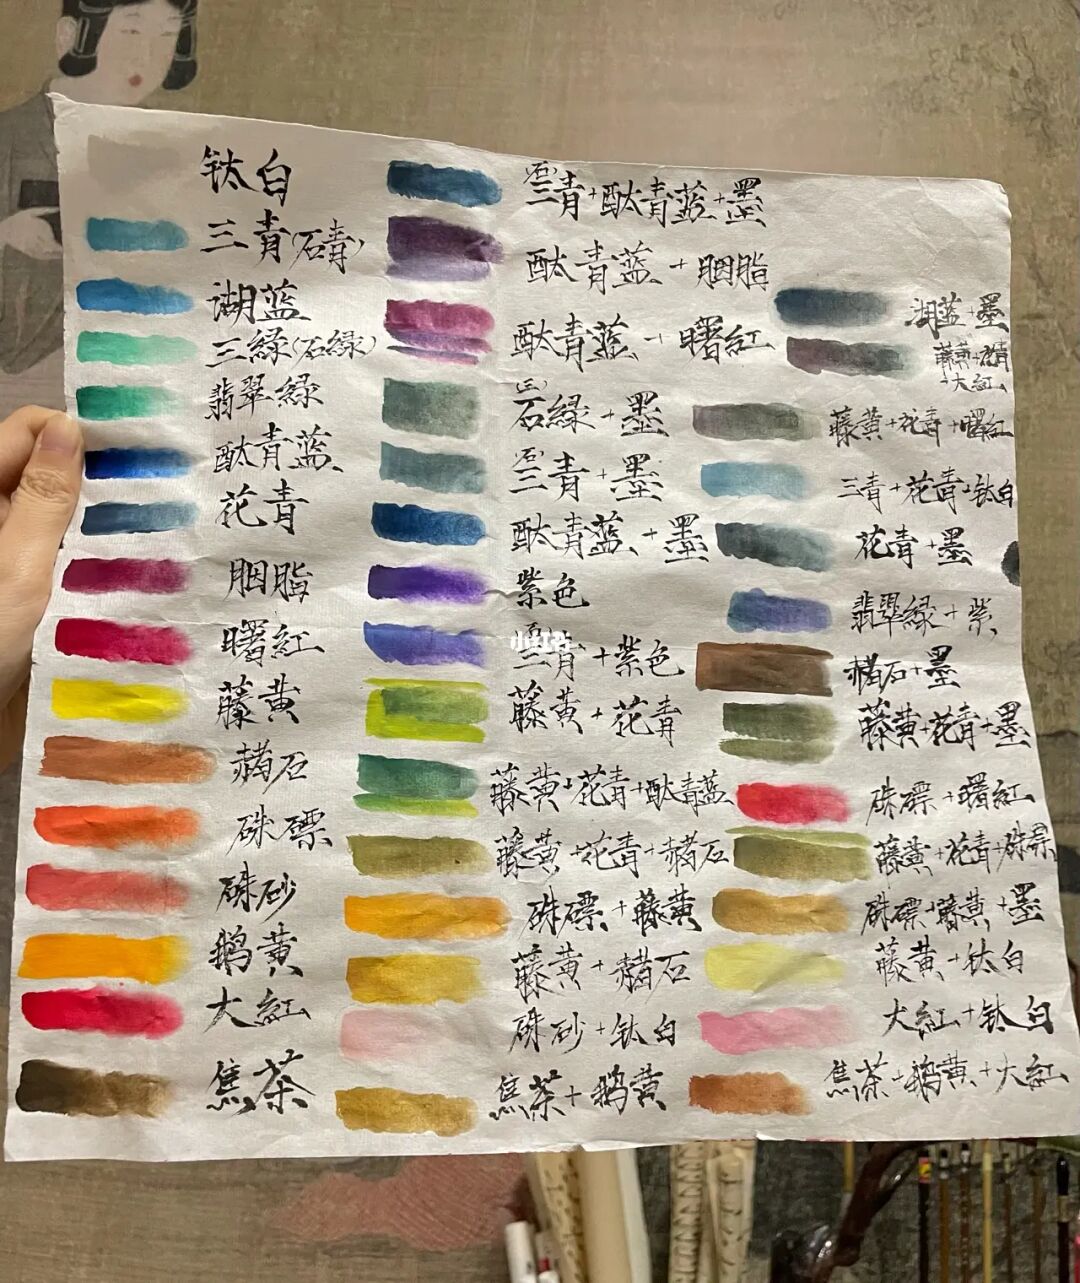 钛白
三青(石青)
湖蓝
三緑(石緑)
翡翠緑
酞青蓝
花青
胭脂
曙紅
藤黄
赭石
硃磦
硃砂
鹅黄
大紅
焦茶
(石)
三青+酞青蓝+墨
酞青蓝+胭脂
酞青蓝+曙紅
(三)
石緑+墨
(石)
三青+墨
酞青蓝+墨
紫色
三青+紫色
藤黄+花青
藤黄+花青+酞青蓝
藤黄+花青+赭石
硃磦+藤黄
藤黄+赭石
硃砂+钛白
焦茶+鹅黄
湖蓝+墨
藤黄+花青
+大紅
藤黄+花青+曙紅
三青+花青+钛白
花青+墨
翡翠緑+紫
赭石+墨
藤黄+花青+墨
硃磦+曙紅
藤黄+花青+硃磦
硃磦+藤黄+墨
藤黄+钛白
大紅+钛白
焦茶+鹅黄+大紅
小红书